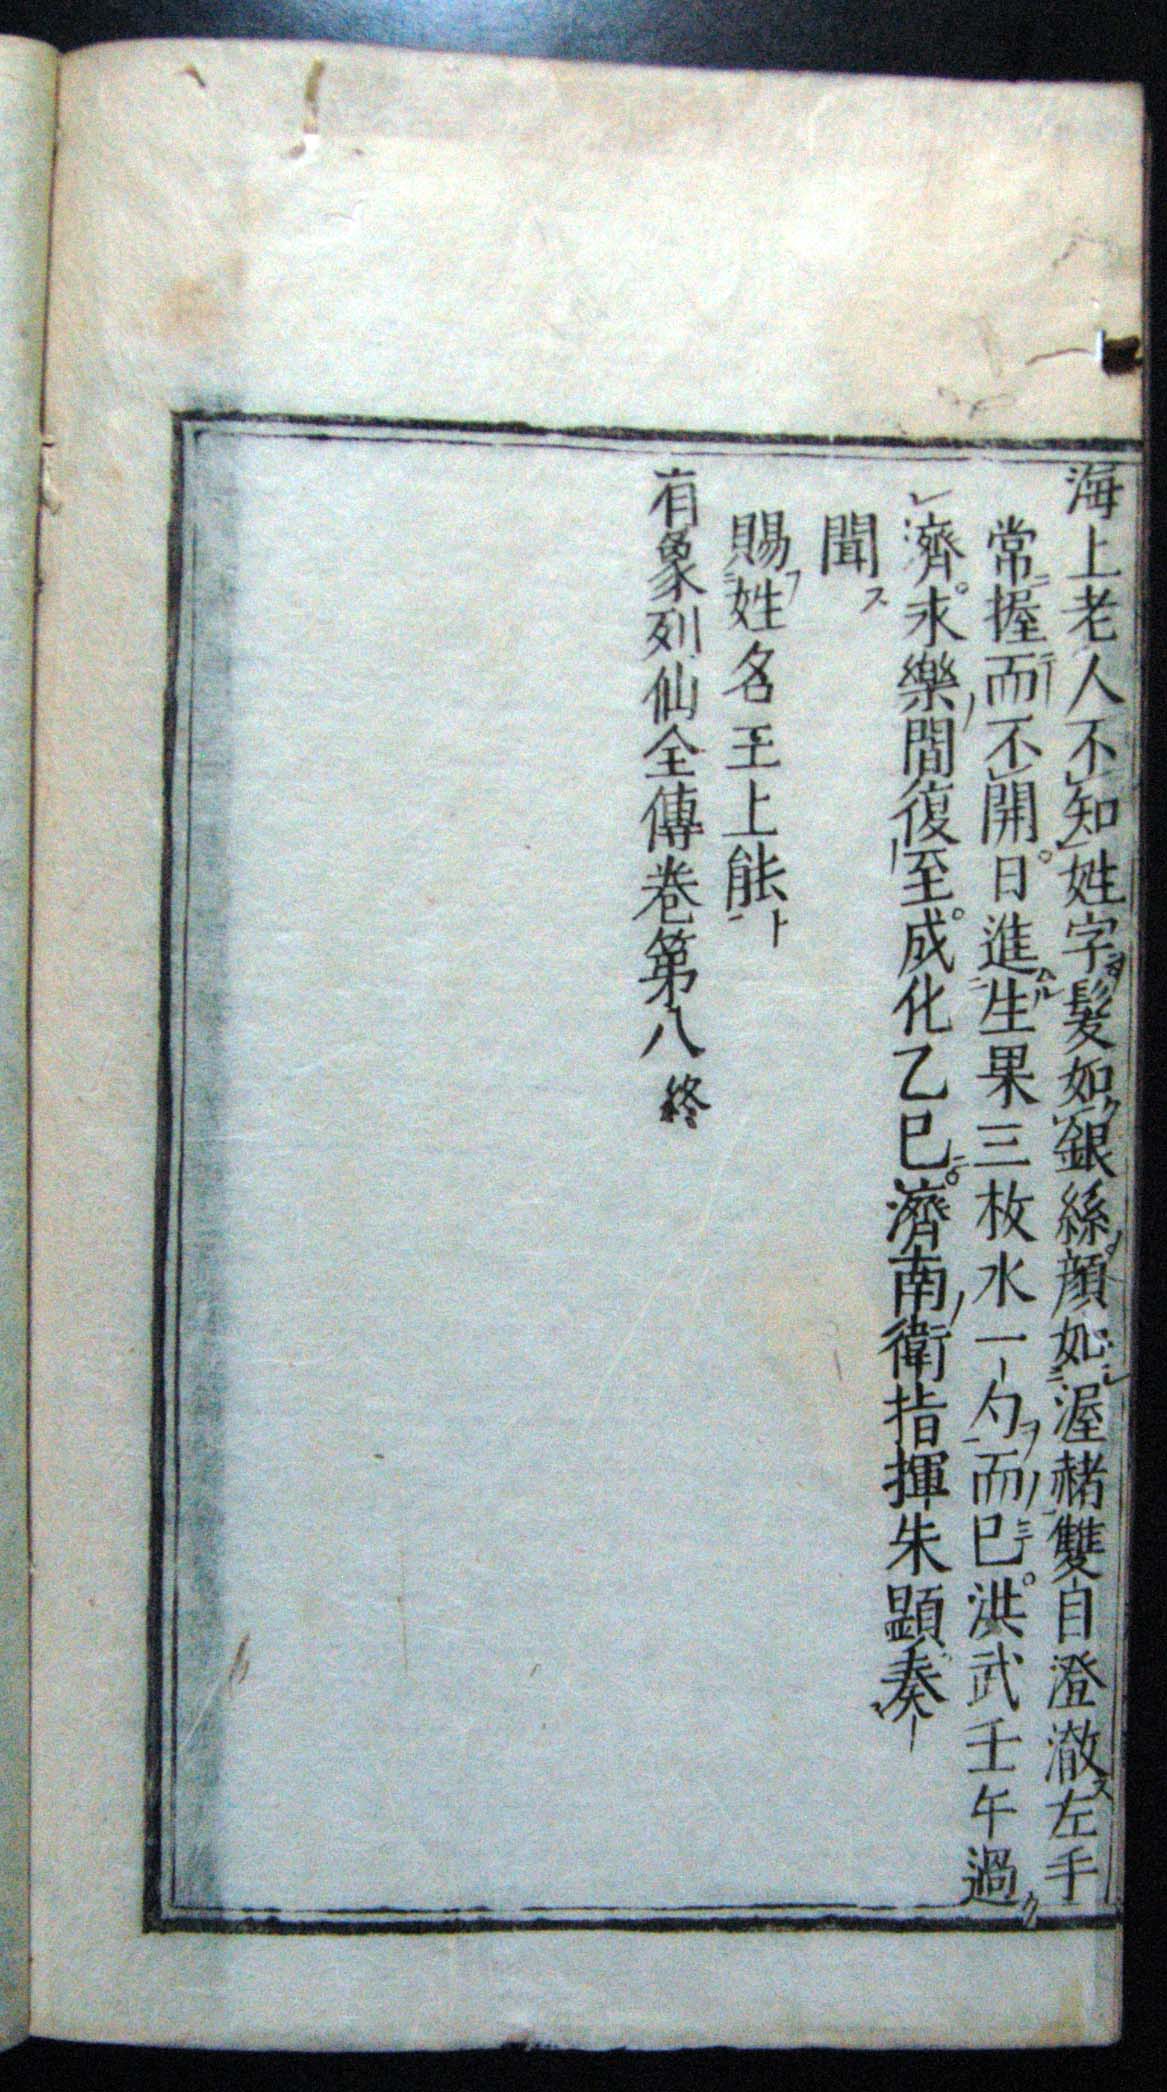 海上老人不知姓字髮如銀絲顔如渥赭雙目澄澈左手
常握而不開日進生果三枚水一勺而已洪武壬午過
濟永樂間復至成化乙巳濟南衛指揮朱顯奏
聞
賜姓名王上能
有象列仙全傳卷第八終